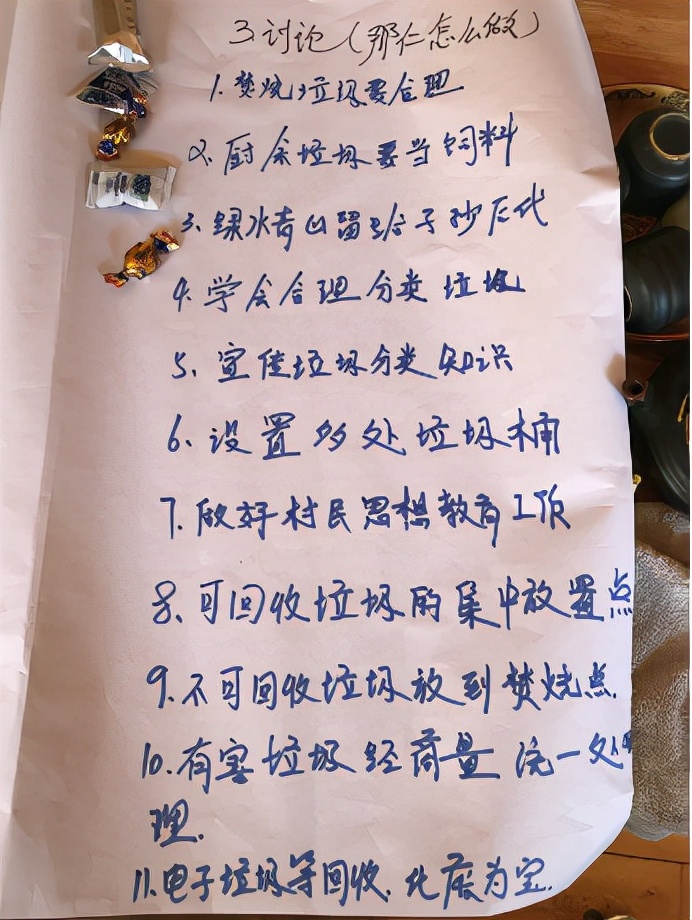 3.讨论(那仁怎么做)
1.焚烧垃圾要合理
2.厨余垃圾要当饲料
3.绿水青山留给子孙后代
4.学会合理分类垃圾
5、宣传垃圾分类知识
6、设置多处垃圾桶
7.做好村民思想教育工作
8.可回收垃圾的集中放置点
9.不可回收垃圾放到焚烧点.
10.有害垃圾经商量统一处
理.
11.电子垃圾等回收.化废为宝.